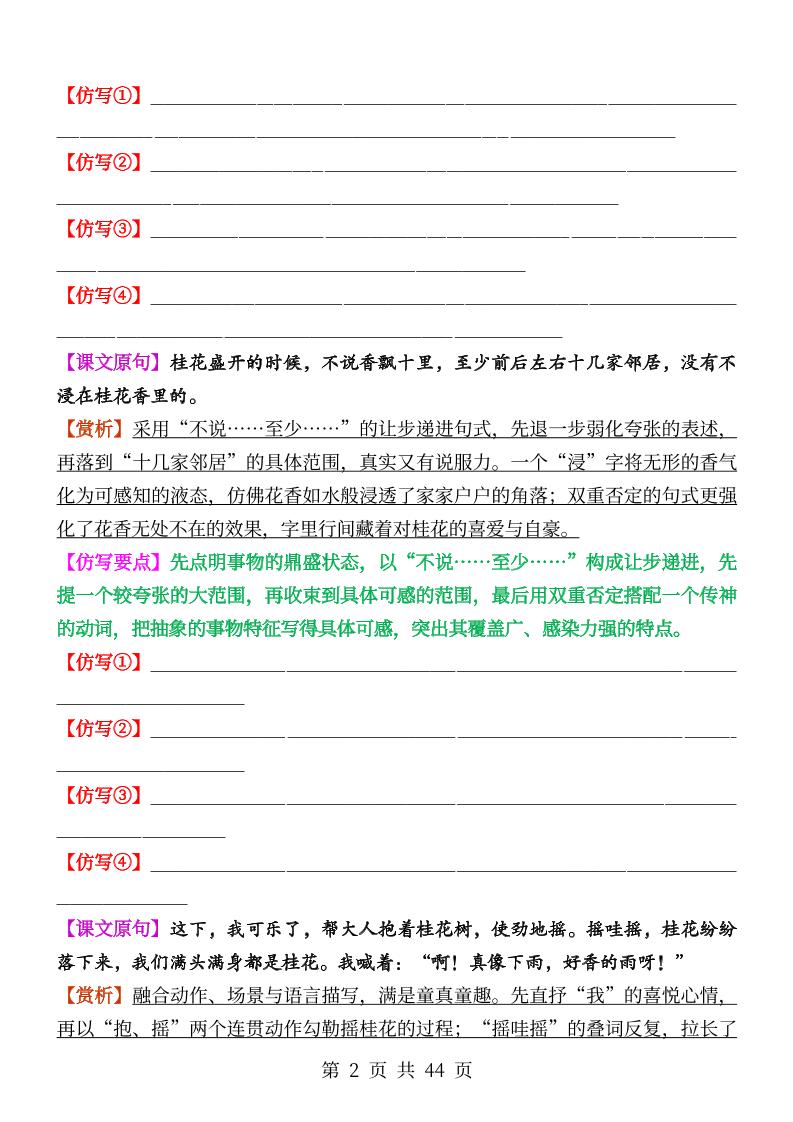 【仿写①】
【仿写②】
【仿写③】
【仿写④】
【课文原句】桂花盛开的时候，不说香飘十里，至少前后左右十几家邻居，没有不
浸在桂花香里的。
【赏析】采用“不说……至少……”的让步递进句式，先退一步弱化夸张的表述，
再落到“十几家邻居”的具体范围，真实又有说服力。一个“浸”字将无形的香气
化为可感知的液态，仿佛花香如水般浸透了家家户户的角落；双重否定的句式更强
化了花香无处不在的效果，字里行间藏着对桂花的喜爱与自豪。
【仿写要点】先点明事物的鼎盛状态，以“不说……至少……”构成让步递进，先
提一个较夸张的大范围，再收束到具体可感的范围，最后用双重否定搭配一个传神
的动词，把抽象的事物特征写得具体可感，突出其覆盖广、感染力强的特点。
【仿写①】
【仿写②】
【仿写③】
【仿写④】
【课文原句】这下，我可乐了，帮大人抱着桂花树，使劲地摇。摇哇摇，桂花纷纷
落下来，我们满头满身都是桂花。我喊着：“啊！真像下雨，好香的雨呀！”
【赏析】融合动作、场景与语言描写，满是童真童趣。先直抒“我”的喜悦心情，
再以“抱、摇”两个连贯动作勾勒摇桂花的过程；“摇哇摇”的叠词反复，拉长了
第 2 页 共 44 页